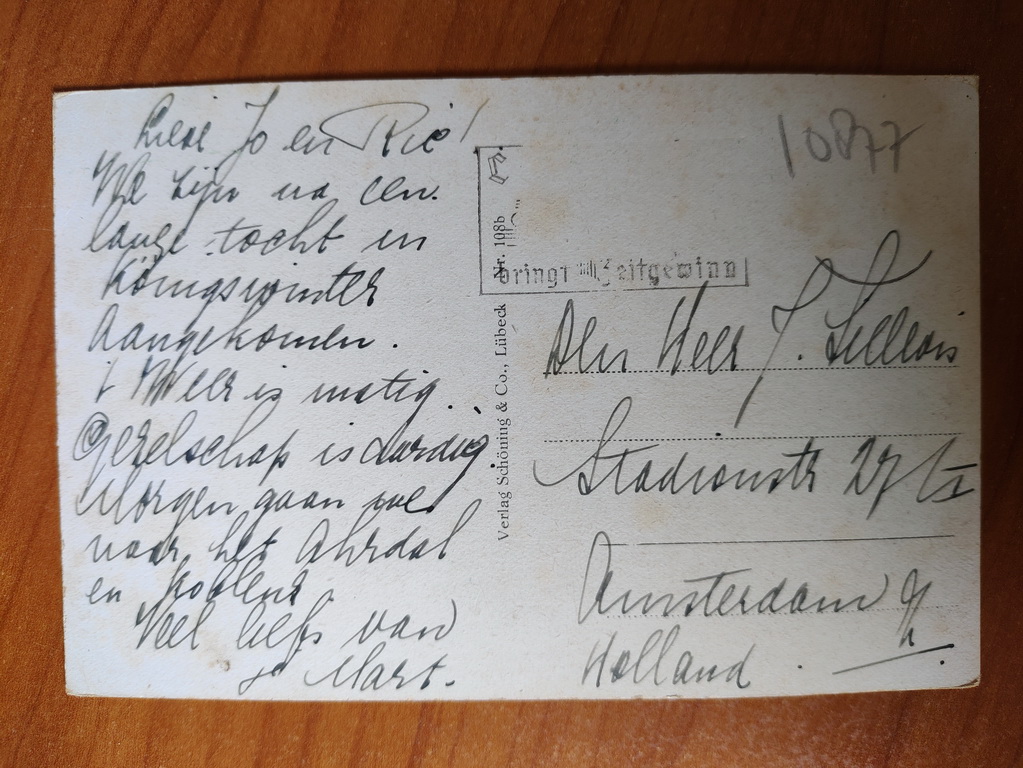 Lieve Jo en Rie!
We zijn na een
lange tocht in
Königswinter
aangekomen.
't Weer is matig.
Gezelschap is aardig
Morgen gaan we
naar het Ahrdal
en Koblenz
Veel liefs van
Mart.
bringt Zeitgewinn
Verlag Schöning & Co., Lübeck Nr. 108b
10877
Den Heer J.
Stadionstr 27
Amsterdam
Holland